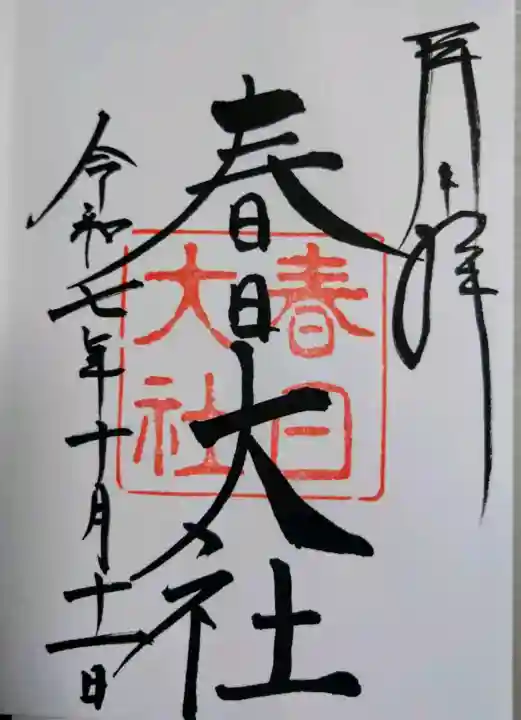 奉拝
春日大社
春日
大社
令和七年十月十一日